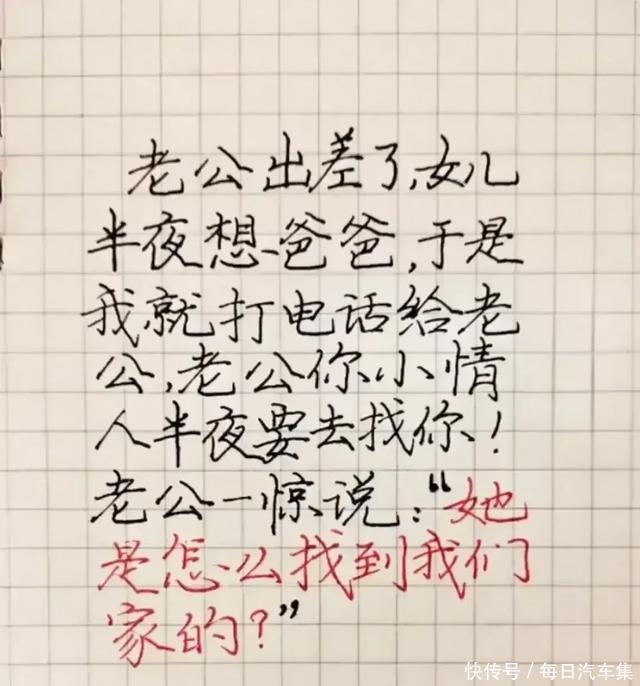 老公出差了,女儿
半夜想爸爸,于是
我就打电话给老
公,老公你小情
人半夜要去找你!
老公一惊说:“她
是怎么找到我们
家的?”
快传号/每日汽车集